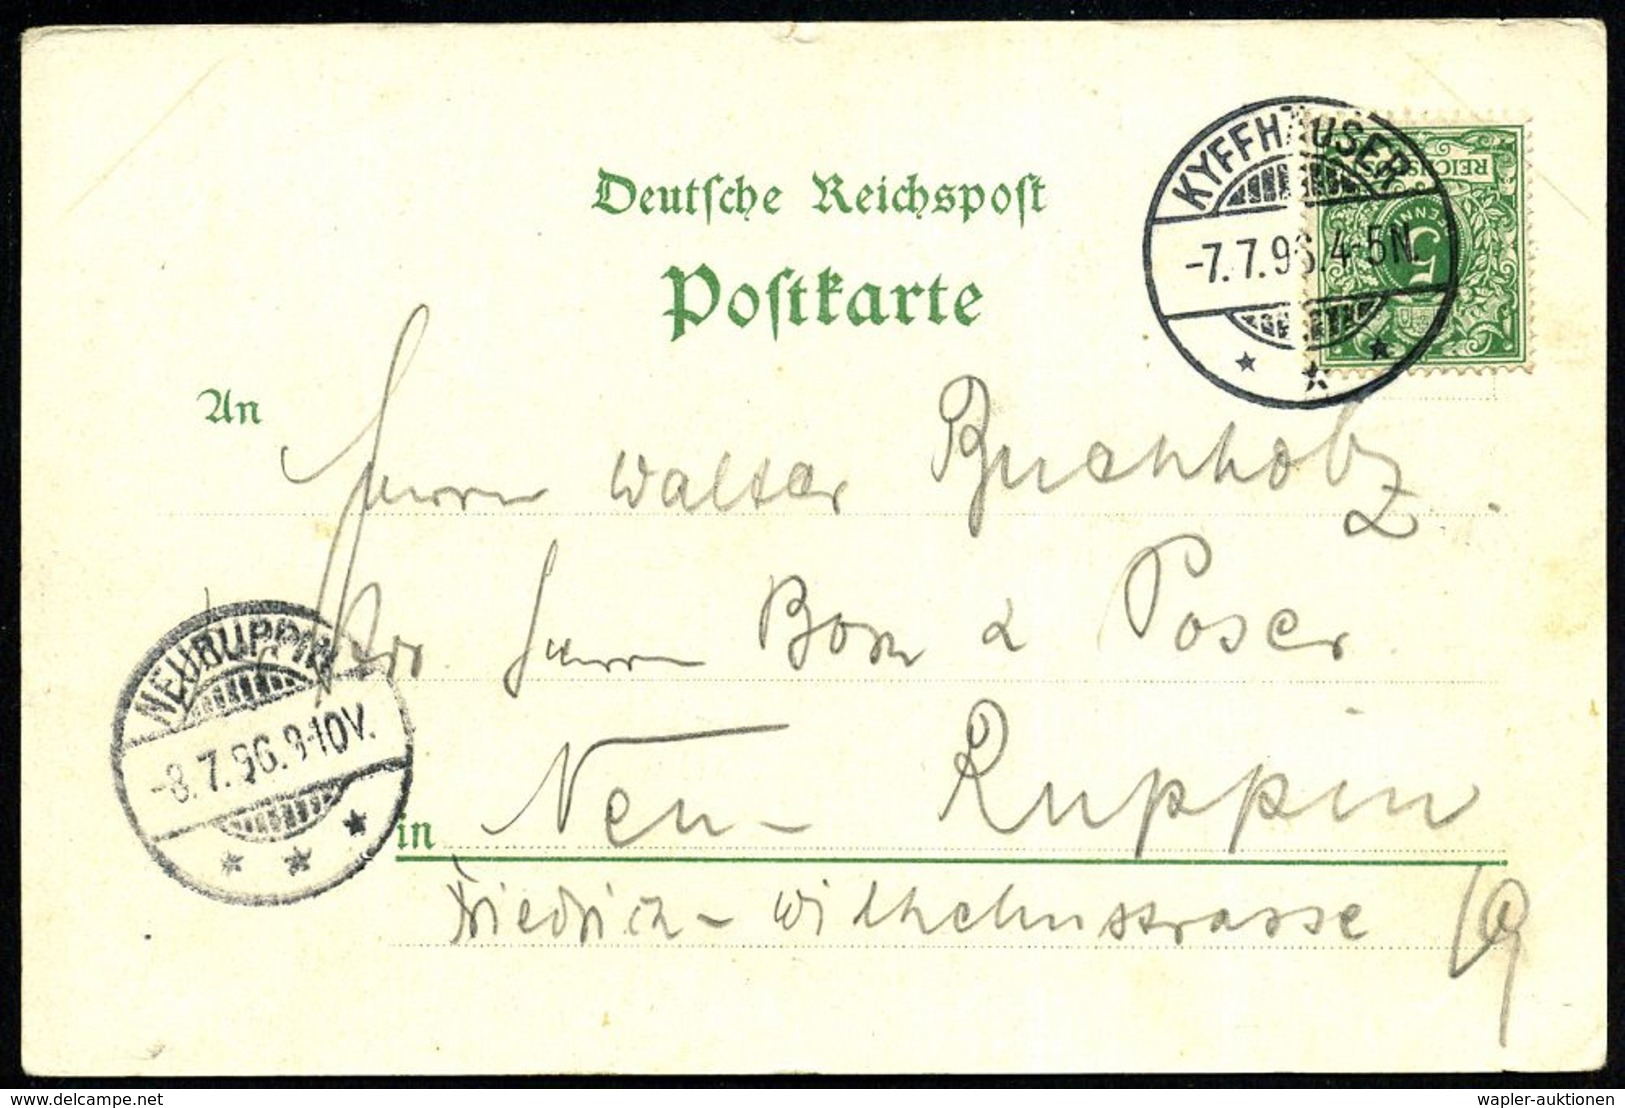 Deutsche Reichspost
Postkarte
KYFFHÄUSER
-7.7.96.4-5N.
REICHSPOST
5
PFENNIG
An
Herrn Walter Buchholz.
Herrn Born & Poser
NEURUPPIN
-8.7.96.9-10V.
in Neu-Ruppin
Friedrich-Wilhelmstrasse 19
delcampe.net
wapler-auktionen